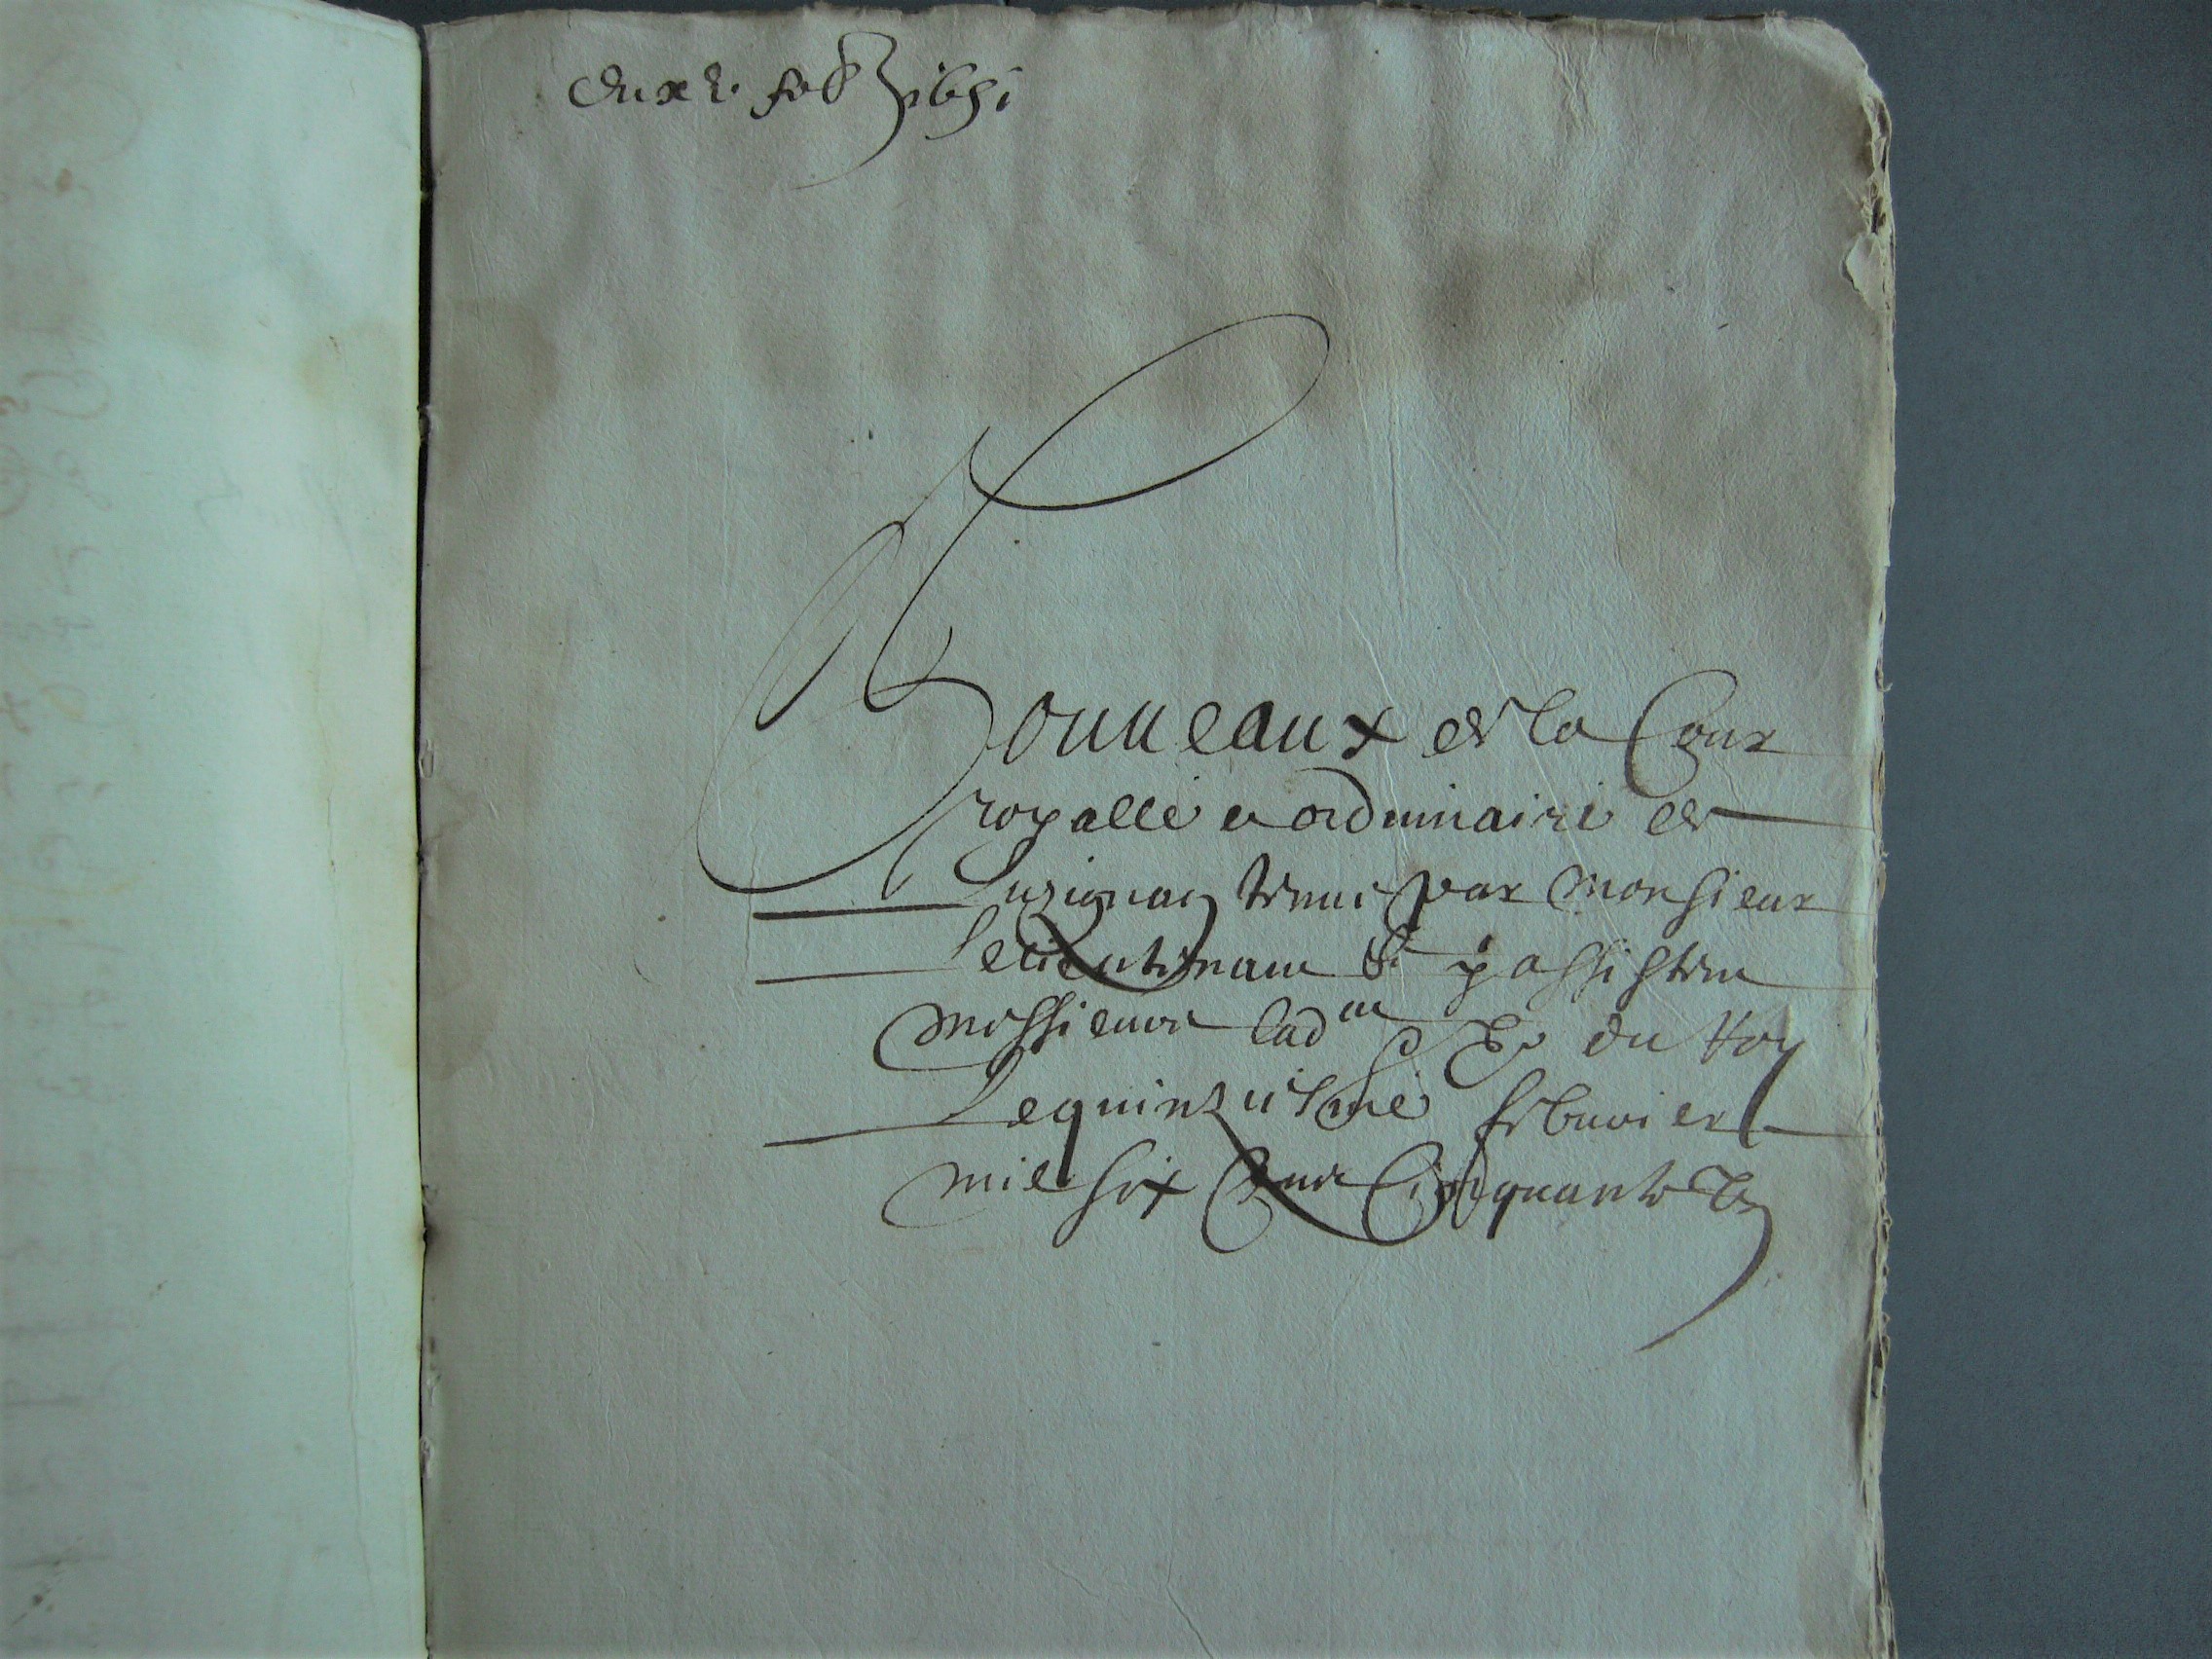 Du xv feb 1651
Nouveaux de la Cour
royalle et ordinnaire de
Luzignan tenue par Monsieur
Le lieutenant y assistent
messieurs lad et du Roy
Le quinziesme febuvier
mil six Cent Cinquante Un